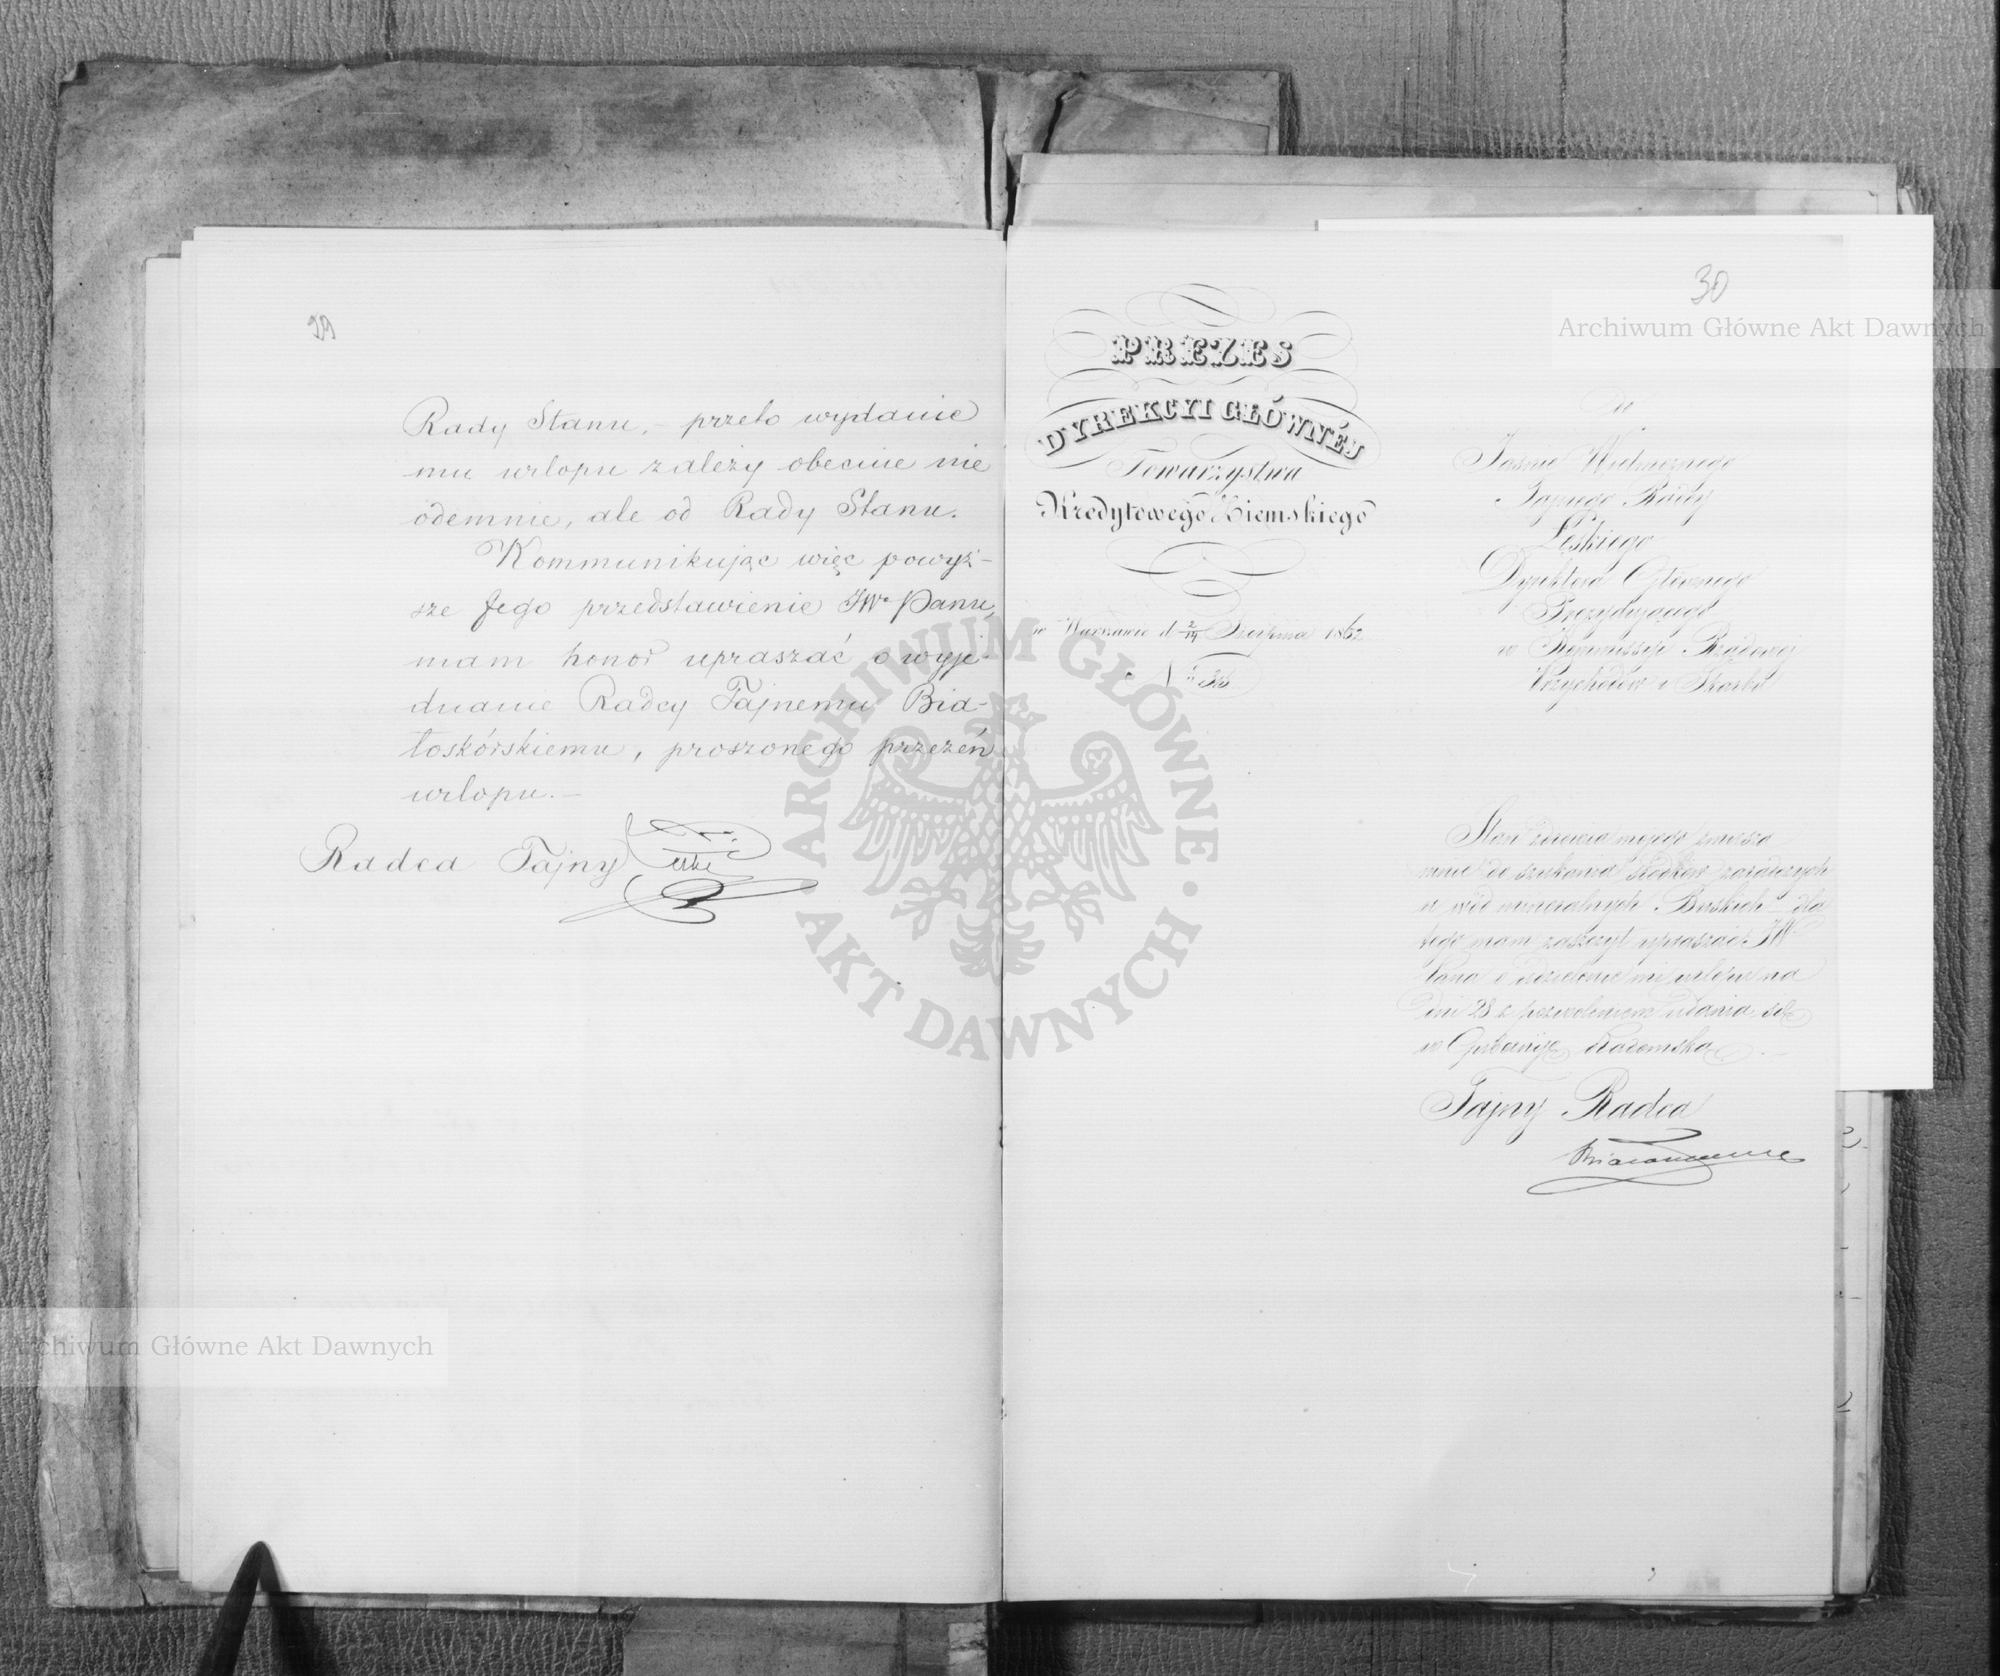 29
Rady Stanu, – przeto wydanie
mu urlopu zależy obecnie nie
odemnie, ale od Rady Stanu.
Kommunikując więc powyż-
sze Jego przedstawienie JWu Panu,
mam honor upraszać o wyje-
dnanie Radcy Tajnemu Bia-
łoskórskiemu, proszonego przezeń
urlopu. –
Radca Tajny
30
PREZES
DYREKCYI GŁÓWNÉJ
Towarzystwa
Kredytowego Ziemskiego
w Warszawie d 2/14 Sierpnia 1862
Do
Jaśnie Wielmożnego
Tajnego Radcy
Łęskiego
Dyrektora Głównego
Prezydującego
w Kommissyi Rządowej
Przychodów i Skarbu
Stan zdrowia mojego zmusza
mnie do szukania środków zaradczych
u wód mineralnych Buskich dla
tego mam zaszczyt upraszać JW
Pana o udzielenie mi urlopu na
dni 28 z pozwoleniem udania się
w Gubernję Radomską
Tajny Radca
Archiwum Główne Akt Dawnych
ARCHIWUM GŁÓWNE · AKT DAWNYCH ·
Archiwum Główne Akt Dawnych